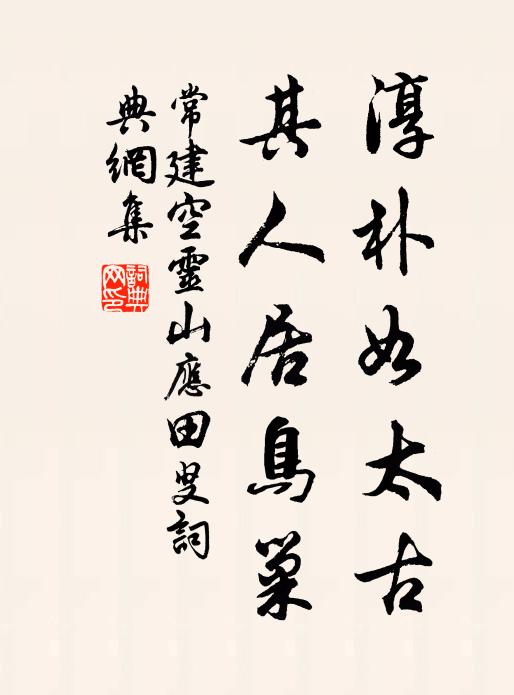 淳朴如太古
其人居鳥巢
常建空靈山應田叟詞
典網集
詞典网印